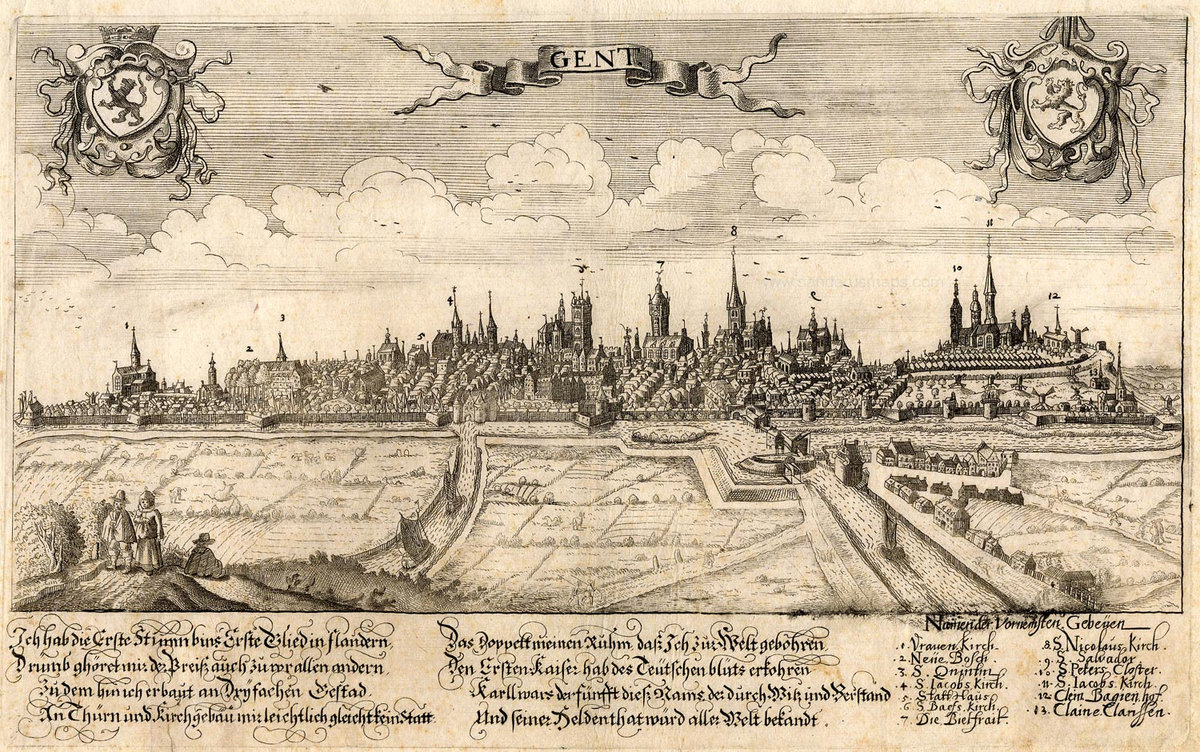 GENT
1
2
3
4
5
6
7
8
9
10
11
12
www.sanderusmaps.com
Ich hab die Erste Stimm bins Erste Glied in flandern,
Drumb ghöret mir der Preiß auch zuvor allen andern
Zu dem bin ich erbaut an Dryfachen Gestad.
An Thürn und Kirchgebäu mir leichtlich gleicht kein Statt.
Das Doppelt meinen Rühm, daß Ich zur Welt gebohren
Den Ersten Kaiser hab des Teutschen bluts erkohren
Karll war der fünfft dieß Nams der durch Witz und Verstand
Und seiner Heldenthat ward aller Welt bekandt.
Namen der Vornemsten Gebeyen
1. Vrauen Kirch.
2. Neue Bosch
3. S. Quintin
4. S. Iacobs Kirch.
5. Statt Haus
6. S. Baefs Kirch.
7. Die Bielfrait.
8. S. Nicolaus Kirch.
9. S. Salvador
10. S. Peters Closter.
11. S. Iacobs Kirch.
12. Clem Bagien hof
13. Claine Clarissen.